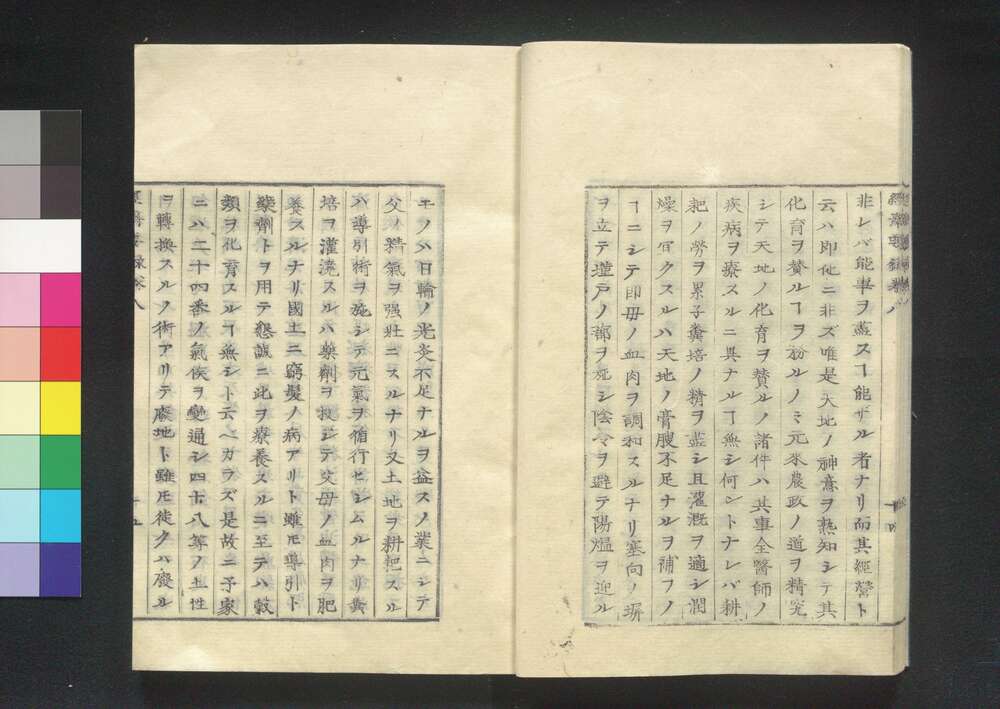 非レバ能畢ヲ盡スヿ能ザル者ナリ而其經營ト
云ハ即他ニ非ズ唯是天地ノ神意ヲ熟知シテ其
化育ヲ賛ルヿヲ務ルノミ元來農政ノ道ヲ精究
シテ天地ノ化育ヲ賛ルノ諸件ハ其事全醫師ノ
疾病ヲ療スルニ異ナルヿ無シ何ントナレバ耕
耙ノ勞ヲ累子糞培ノ精ヲ盡シ且灌漑ヲ適シ潤
燥ヲ冝クスルハ天地ノ膏腴不足ナルヲ補フノ
ヿニシテ即毋ノ血肉ヲ調和スルナリ塞向ノ塀
ヲ立テ墐戸ノ蔀ヲ施シ陰冷ヲ避テ陽熅ヲ迎ル
モノハ日輪ノ光炎不足ナルヲ益スノ業ニシテ
父ノ精氣ヲ强壯ニスルナリ又土地ヲ耕耙スル
ハ導引術ヲ施シテ元氣ヲ循行セシムルナリ糞
培ヲ灌澆スルハ藥劑ヲ投シテ父毋ノ血肉ヲ肥
養スルナリ國土ニ窮髮ノ病アリト雖モ導引ト
藥劑トヲ用テ懇誠ニ此ヲ療養スルニ至テハ穀
類ヲ化育スルヿ無シト云ベカラズ是故ニ予家
ニハ二十四番ノ氣候ヲ變通シ四十八等ノ土性
ヲ轉換スルノ術アリテ廢地ト雖モ徒クハ廢ル
十五